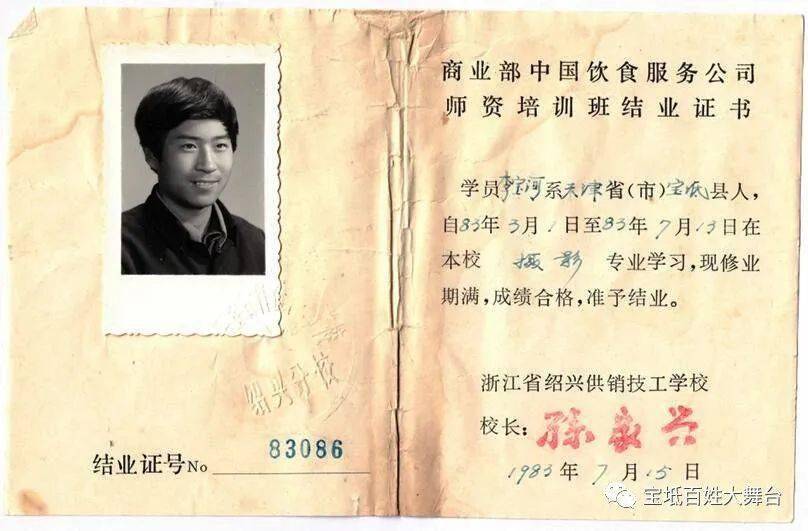 绍兴分校
结业证号No 83086
商业部中国饮食服务公司
师资培训班结业证书
学员李宝河系天津省(市)宝坻县人,
自83年3月1日至83年7月13日在
本校 摄影 专业学习,现修业
期满,成绩合格,准予结业。
浙江省绍兴供销技工学校
校长:孙家兴
1983年7月15日
宝坻百姓大舞台